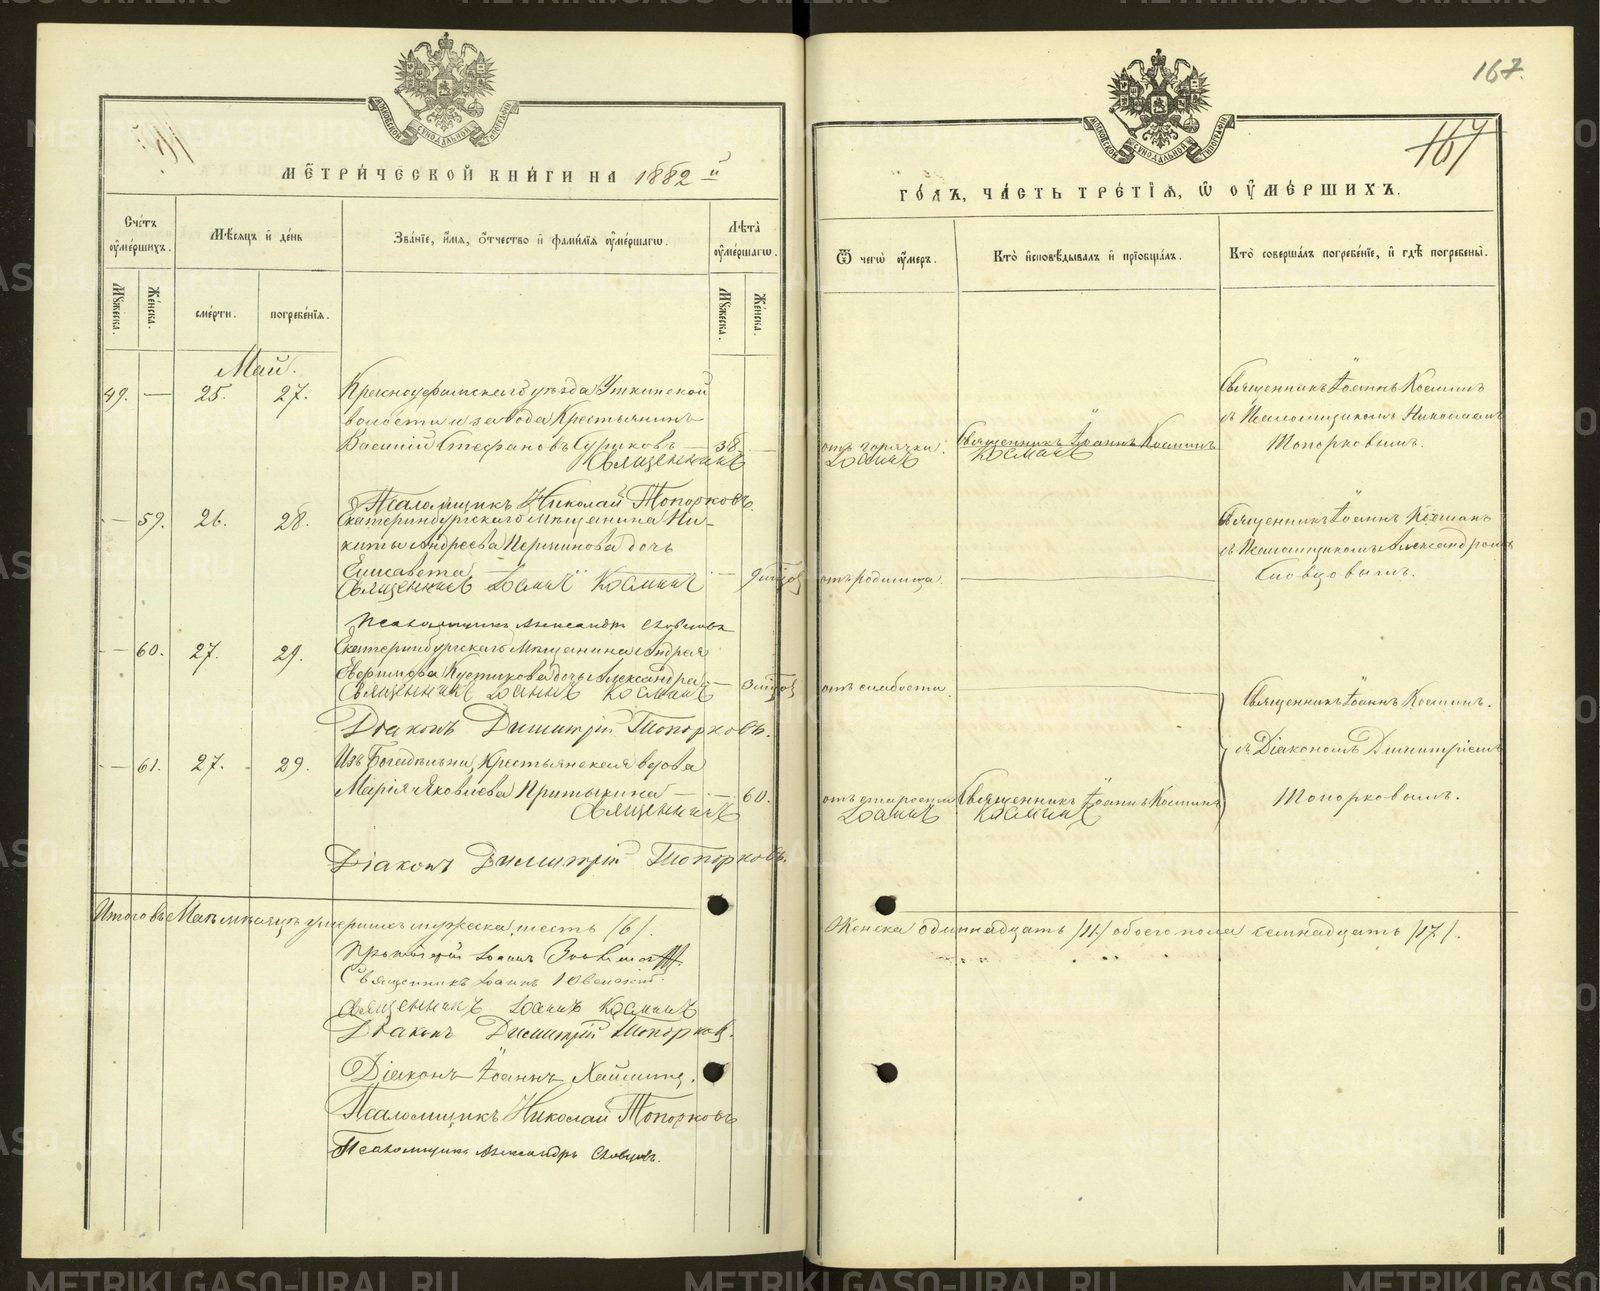 167.
167
МЕТРИЧЕСКОЙ КНИГИ НА 1882 й
ГОДЪ, ЧАСТЬ ТРЕТІЯ, Ѡ ОУМЕРШИХЪ.
Счетъ оумершихъ.
Мѣсяцъ и день
Званіе, имя, отчество и фамилія оумершаго.
Лѣта оумершаго.
Ѿ чего оумеръ.
Кто исповѣдывалъ и пріобщалъ.
Кто совершалъ погребеніе, и гдѣ погребены.
Мужеска.
Женска.
смерти.
погребенія.
Мужеска.
Женска.
Май.
49. — 25. 27. Красноуфимскаго уѣзда Уткинской
волости и завода Крестьянинъ
Василій Стефановъ Суриковъ — 38. —
отъ горячки.
Священникъ Іоаннъ Косминъ
Священникъ Іоаннъ Косминъ
съ Псаломщикомъ Николаемъ
Топорковымъ.
Священникъ Іоаннъ Косминъ
Псаломщикъ Николай Топорковъ.
— 59. 26. 28. Екатеринбургскаго мѣщанина Ни-
киты Андреева дочь
Елисавета — 9
отъ родимца.
Священникъ Іоаннъ Косминъ
съ Псаломщикомъ Александромъ
Словцовымъ.
Священникъ Іоаннъ Косминъ
Псаломщикъ Александръ Словцовъ
— 60. 27. 29. Екатеринбургскаго Мѣщанина Андрея
дочь Александра — 3
отъ слабости.
Священникъ Іоаннъ Косминъ
Діаконъ Димитрій Топорковъ.
Священникъ Іоаннъ Косминъ.
съ Діакономъ Димитріемъ
Топорковымъ.
— 61. 27. 29. Изъ Богадѣльни, Крестьянская вдова
Марія Яковлева Притыкина — 60.
отъ старости
Священникъ Іоаннъ Косминъ
Священникъ Іоаннъ Косминъ
Діаконъ Димитрій Топорковъ.
Итого въ Маѣ мѣсяцѣ умершихъ мужеска шесть /6/.
Женска одиннадцать /11/ обоего пола семнадцать /17/.
Протоіерей Іоаннъ
Священникъ Іоаннъ
Священникъ Іоаннъ Косминъ
Діаконъ Димитрій Топорковъ.
Діаконъ Іоаннъ
Псаломщикъ Николай Топорковъ
Псаломщикъ Александръ Словцовъ.
METRIKI.GASO-URAL.RU